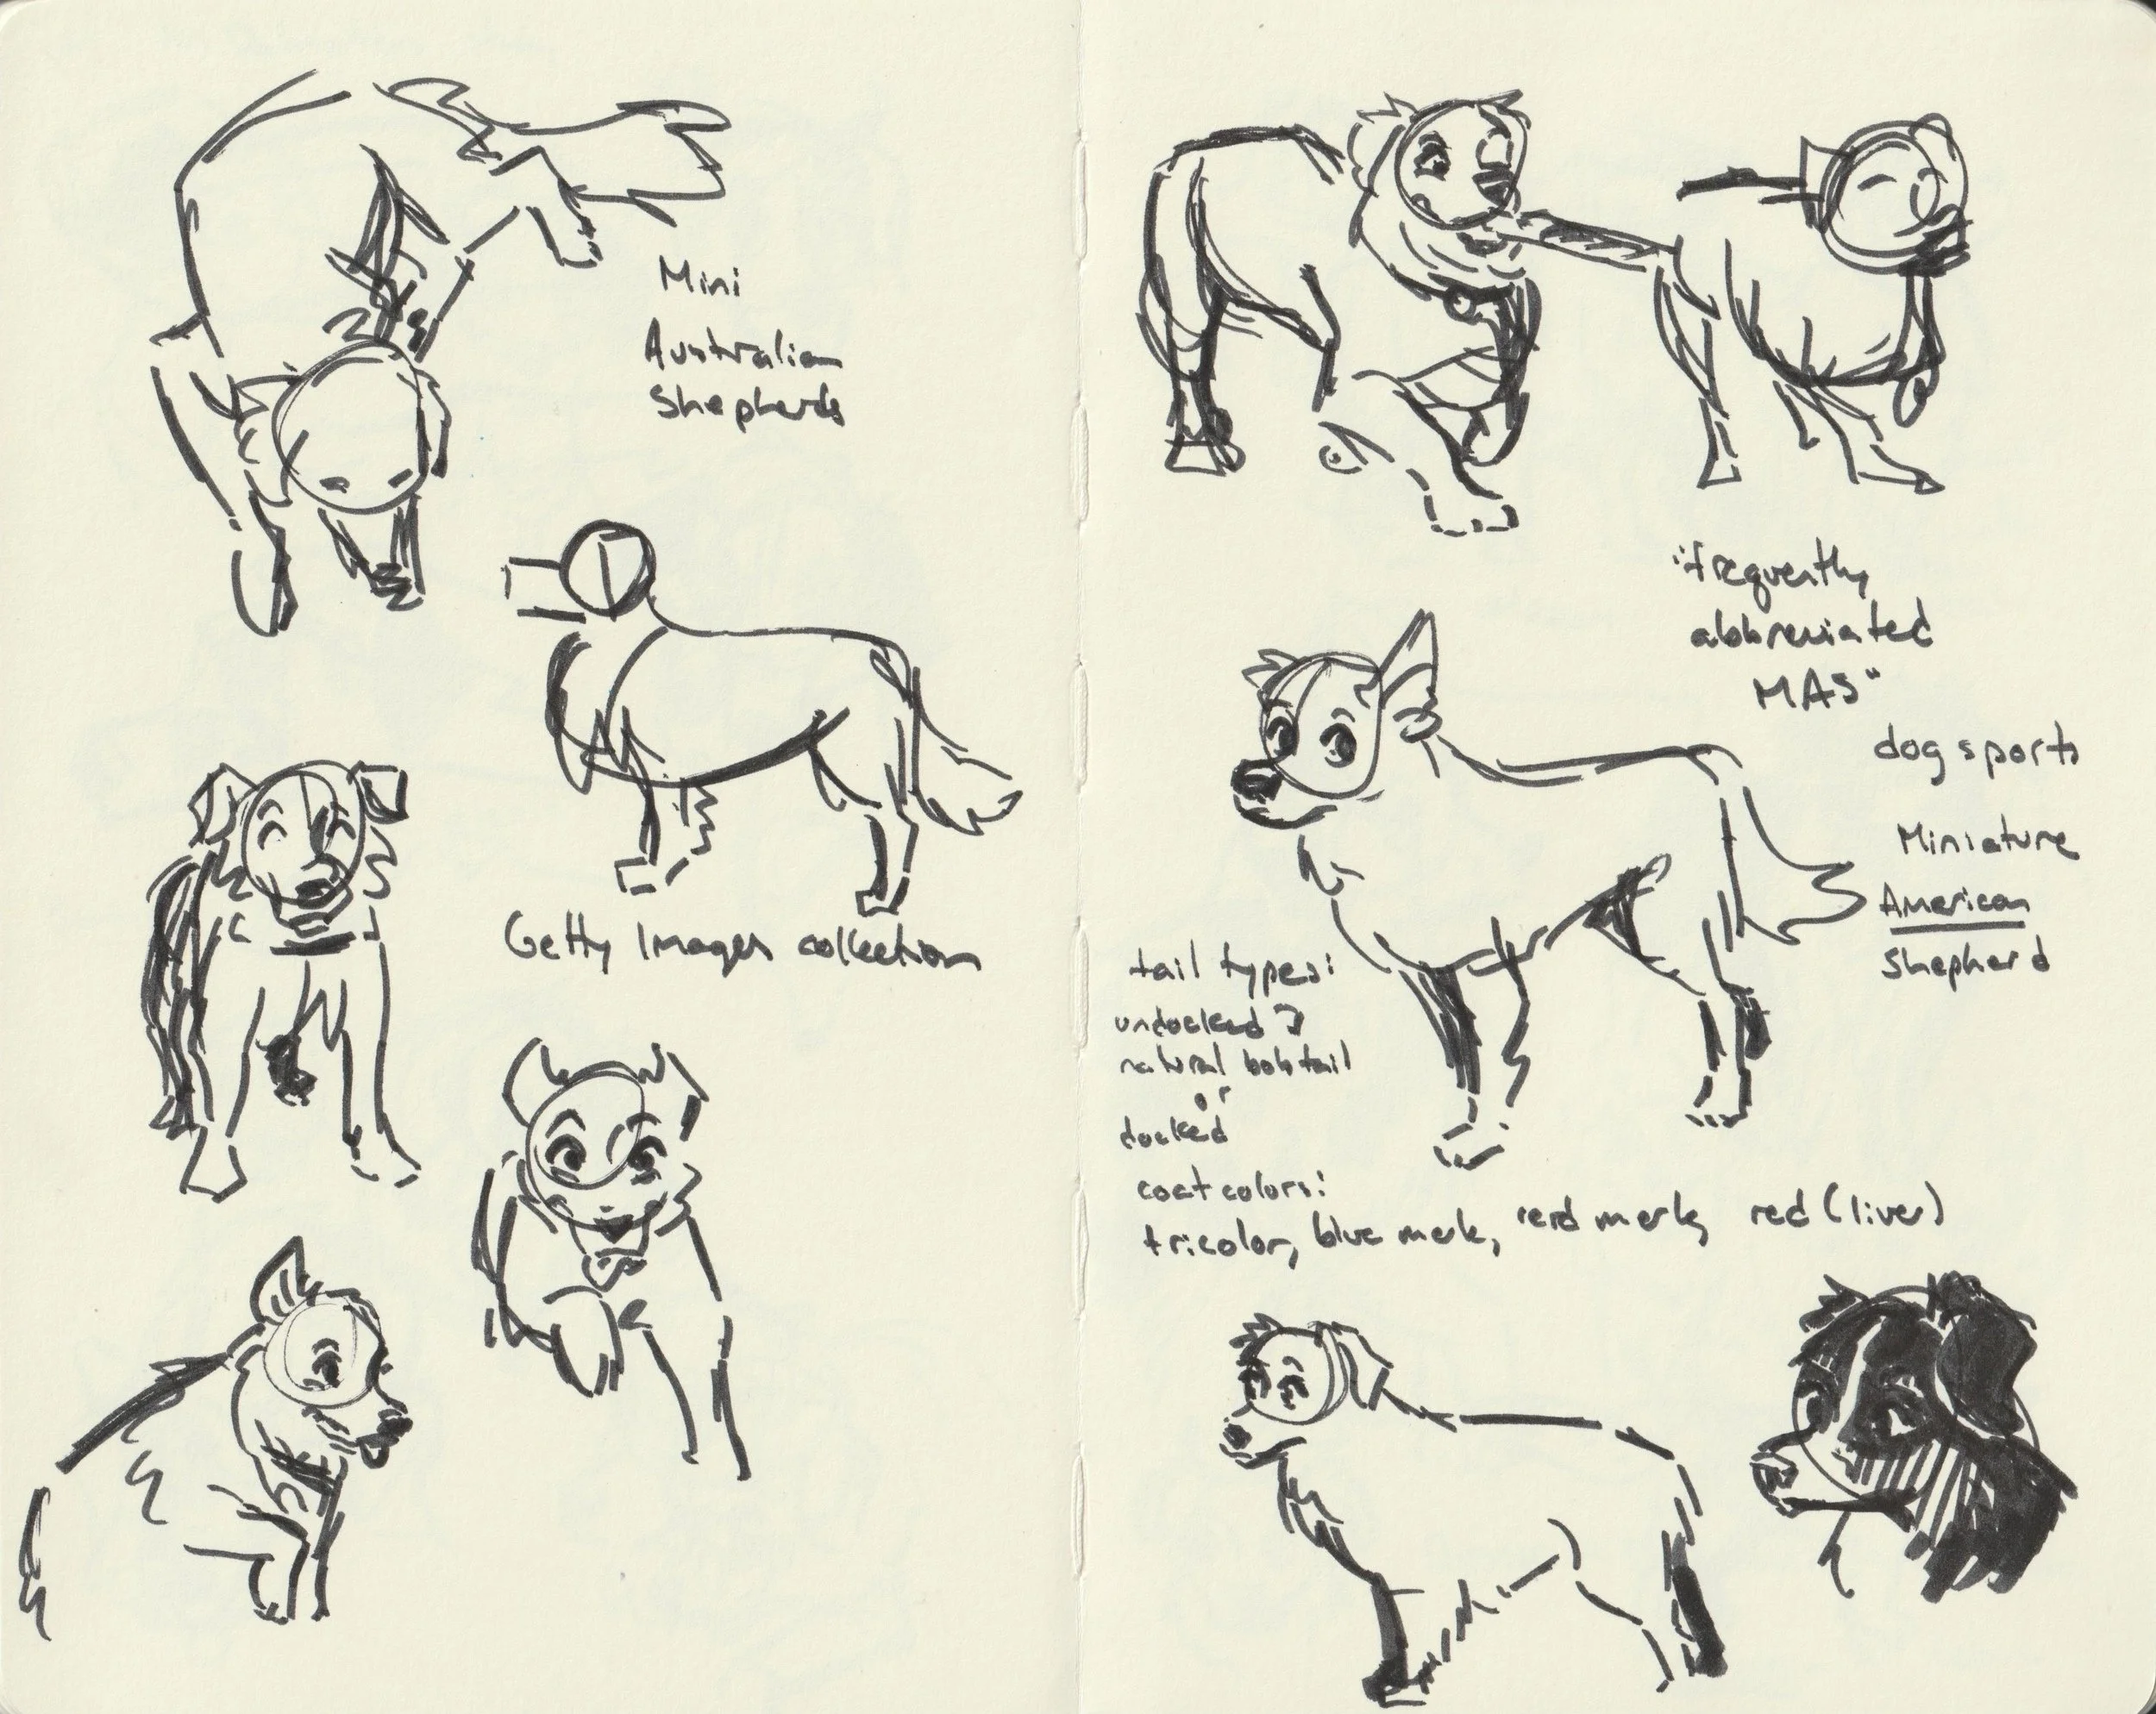 Mini
Australian
Shepherds
Getty Images collection
"frequently
abbreviated
MAS"
dog sports
Miniature
American
Shepherd
tail types:
undocked
natural bobtail
or
docked
coat colors:
tricolor, blue merle, red merle, red (liver)